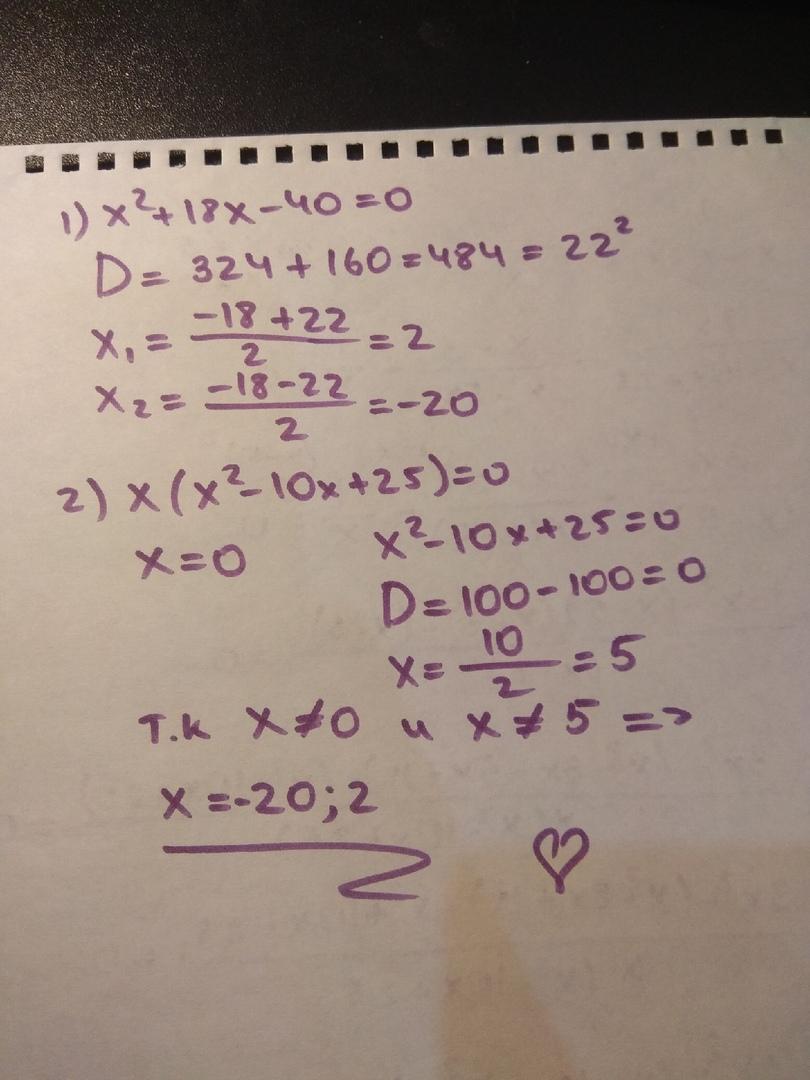 1) x²+18x-40=0
D= 324+160=484=22²
x₁= (-18+22)/2 =2
x₂= (-18-22)/2 =-20
2) x(x²-10x+25)=0
x=0
x²-10x+25=0
D=100-100=0
x= 10/2 =5
т.к x≠0 и x≠5 =>
x=-20;2